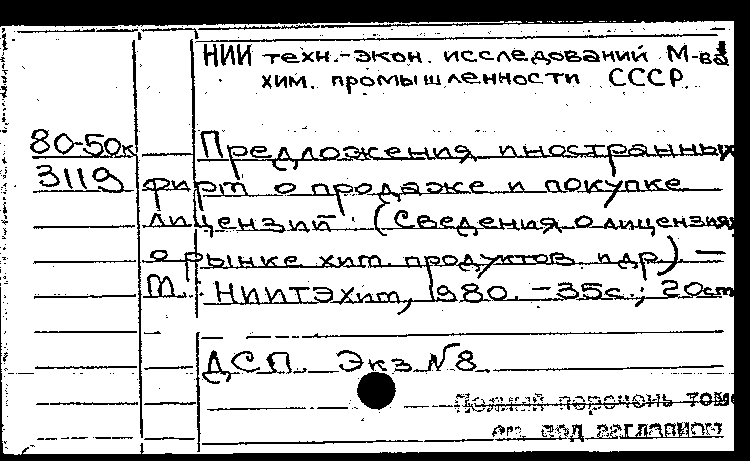 НИИ техн.-экон. исследований М-ва
хим. промышленности СССР
80-50к Предложения иностранных
3119 фирм о продаже и покупке
лицензий: (Сведения о лицензиях,
о рынке хим. продуктов и др.) —
М.: НИИТЭХим, 1980. - 35с.; 20см
ДСП. Экз №8
Полный перечень томо
см. под заглавием